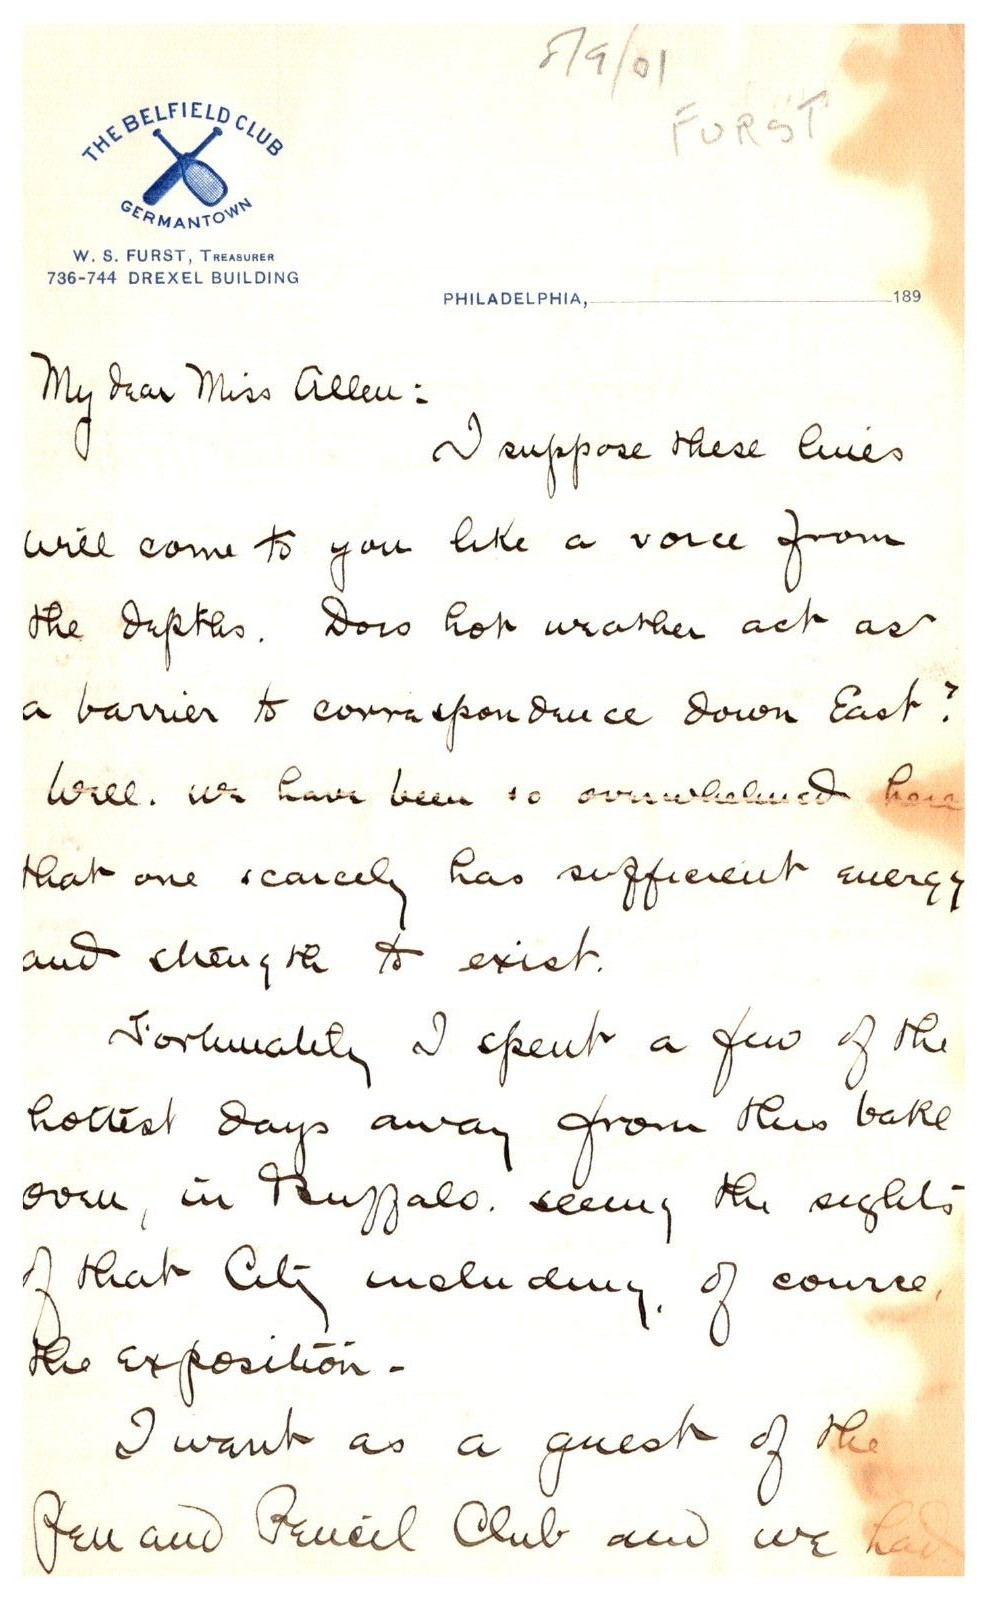 8/9/01
FURST
THE BELFIELD CLUB
GERMANTOWN
W. S. FURST, TREASURER
736-744 DREXEL BUILDING
PHILADELPHIA, 189
My dear Miss Allen:
I suppose these lines
will come to you like a voice from
the depths. Does hot weather act as
a barrier to correspondence down East?
Well. we have been so overwhelmed here
that one scarcely has sufficient energy
and strength to exist.
Fortunately I spent a few of the
hottest days away from this bake
oven, in Buffalo. seeing the sights
of that City including, of course,
the exposition -
I went as a guest of the
Pen and Pencil Club and we had